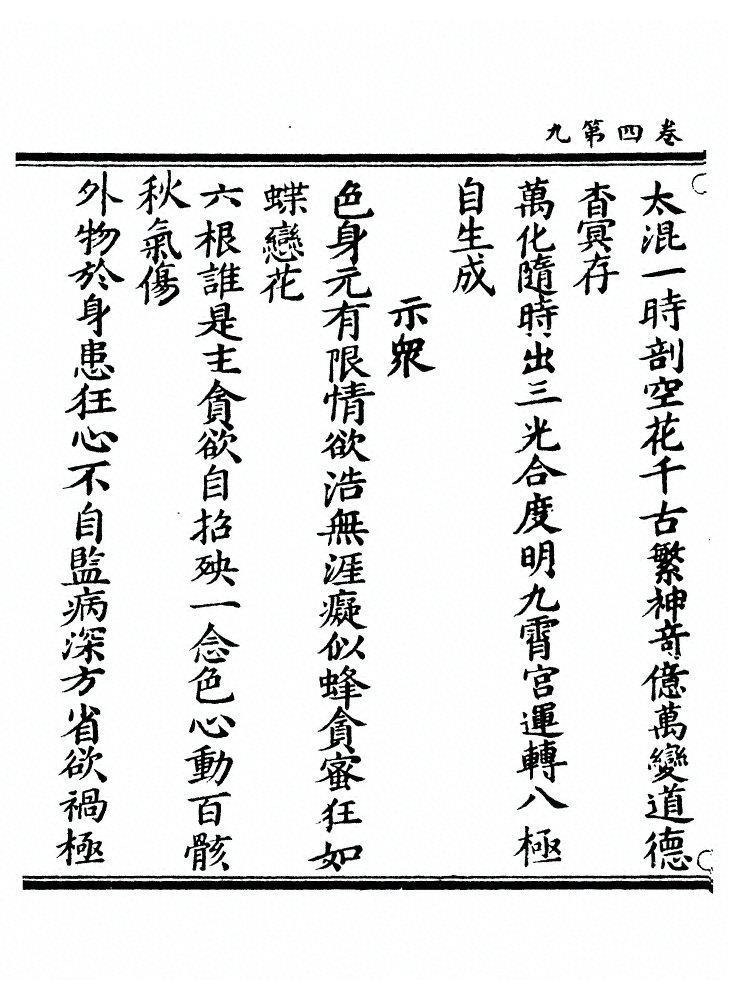 卷四第九
太混一時剖空花千古繁神竒億萬變道德
杳冥存
萬化隨時出三光合度明九霄宮運轉八極
自生成
示衆
色身元有限情欲浩無涯癡似蜂貪蜜狂如
蝶戀花
六根誰是主貪欲自招殃一念色心動百骸
秋氣傷
外物於身患狂心不自監病深方省欲禍極